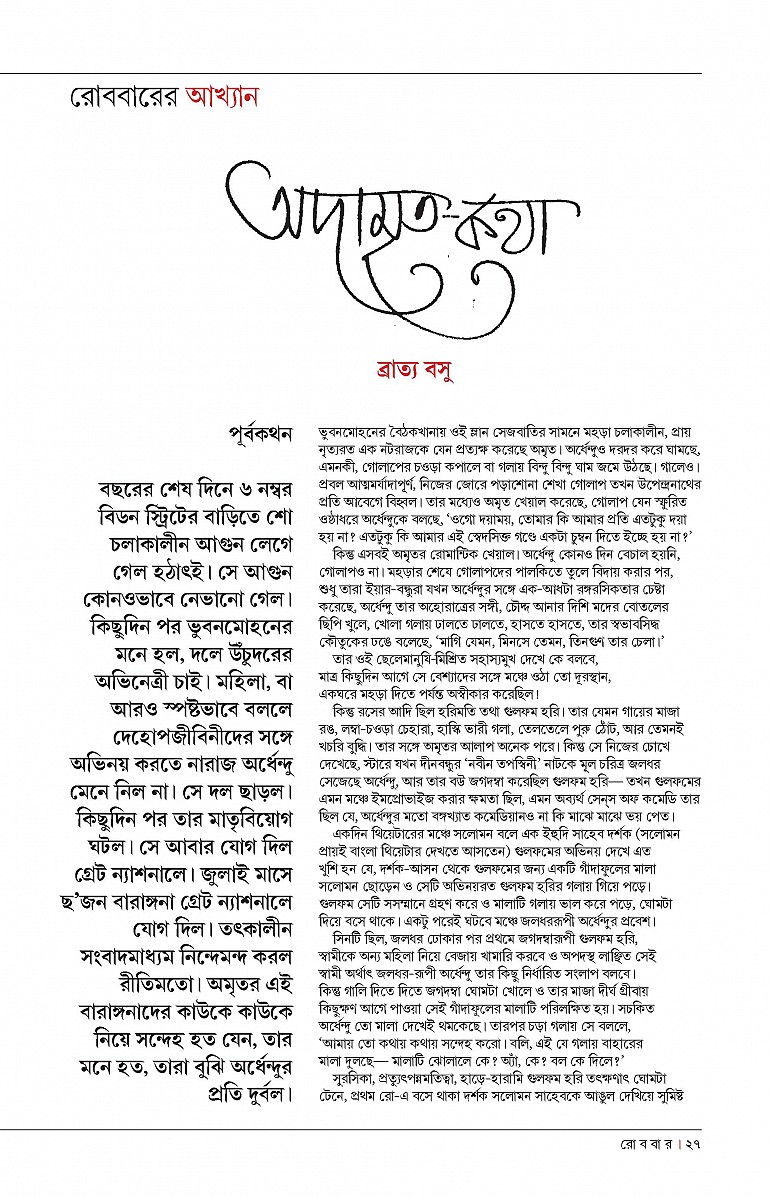 রোববারের আখ্যান
অদামৃত-কথা
ব্রাত্য বসু
পূর্বকথন
বছরের শেষ দিনে ৬ নম্বর
বিডন স্ট্রিটের বাড়িতে শো
চলাকালীন আগুন লেগে
গেল হঠাৎই। সে আগুন
কোনওভাবে নেভানো গেল।
কিছুদিন পর ভুবনমোহনের
মনে হল, দলে উঁচুদরের
অভিনেত্রী চাই। মহিলা, বা
আরও স্পষ্টভাবে বললে
দেহোপজীবিনীদের সঙ্গে
অভিনয় করতে নারাজ অর্ধেন্দু
মেনে নিল না। সে দল ছাড়ল।
কিছুদিন পর তার মাতৃবিয়োগ
ঘটল। সে আবার যোগ দিল
গ্রেট ন্যাশনালে। জুলাই মাসে
ছ’জন বারাঙ্গনা গ্রেট ন্যাশনালে
যোগ দিল। তৎকালীন
সংবাদমাধ্যম নিন্দেমন্দ করল
রীতিমতো। অমৃতর এই
বারাঙ্গনাদের কাউকে কাউকে
নিয়ে সন্দেহ হত যেন, তার
মনে হত, তারা বুঝি অর্ধেন্দুর
প্রতি দুর্বল।
ভুবনমোহনের বৈঠকখানায় ওই ম্লান সেজবাতির সামনে মহড়া চলাকালীন, প্রায়
নৃত্যরত এক নটরাজকে যেন প্রত্যক্ষ করেছে অমৃত। অর্ধেন্দুও দরদর করে ঘামছে,
এমনকী, গোলাপের চওড়া কপালে বা গলায় বিন্দু বিন্দু ঘাম জমে উঠছে। গালেও।
প্রবল আত্মমর্যাদাপূর্ণ, নিজের জোরে পড়াশোনা শেখা গোলাপ তখন উপেন্দ্রনাথের
প্রতি আবেগে বিহ্বল। তার মধ্যেও অমৃত খেয়াল করেছে, গোলাপ যেন স্ফুরিত
ওষ্ঠাধরে অর্ধেন্দুকে বলছে, ‘ওগো দয়াময়, তোমার কি আমার প্রতি এতটুকু দয়া
হয় না? এতটুকু কি আমার এই স্বেদসিক্ত গণ্ডে একটা চুম্বন দিতে ইচ্ছে হয় না?’
কিন্তু এসবই অমৃতর রোমান্টিক খেয়াল। অর্ধেন্দু কোনও দিন বেচাল হয়নি,
গোলাপও না। মহড়ার শেষে গোলাপদের পালকিতে তুলে বিদায় করার পর,
শুধু তারা ইয়ার-বন্ধুরা যখন অর্ধেন্দুর সঙ্গে এক-আধটা রঙ্গরসিকতার চেষ্টা
করেছে, অর্ধেন্দু তার অহোরাত্রের সঙ্গী, চৌদ্দ আনার দিশি মদের বোতলের
ছিপি খুলে, খোলা গলায় ঢালতে ঢালতে, হাসতে হাসতে, তার স্বভাবসিদ্ধ
কৌতুকের ঢঙে বলেছে, ‘মাগি যেমন, মিনসে তেমন, তিনগুণ তার চেলা।’
তার ওই ছেলেমানুষি-মিশ্রিত সহাস্যমুখ দেখে কে বলবে,
মাত্র কিছুদিন আগে সে বেশ্যাদের সঙ্গে মঞ্চে ওঠা তো দূরস্থান,
একঘরে মহড়া দিতে পর্যন্ত অস্বীকার করেছিল!
কিন্তু রসের আদি ছিল হরিমতি তথা গুলফম হরি। তার যেমন গায়ের মাজা
রঙ, লম্বা-চওড়া চেহারা, হাস্কি ভারী গলা, তেলতেলে পুরু ঠোঁট, আর তেমনই
খচরি বুদ্ধি। তার সঙ্গে অমৃতর আলাপ অনেক পরে। কিন্তু সে নিজের চোখে
দেখেছে, স্টারে যখন দীনবন্ধুর ‘নবীন তপস্বিনী’ নাটকে মূল চরিত্র জলধর
সেজেছে অর্ধেন্দু, আর তার বউ জগদম্বা করেছিল গুলফম হরি— তখন গুলফমের
এমন মঞ্চে ইমপ্রোভাইজ করার ক্ষমতা ছিল, এমন অব্যর্থ সেন্‌স অফ কমেডি তার
ছিল যে, অর্ধেন্দুর মতো বঙ্গখ্যাত কমেডিয়ানও না কি মাঝে মাঝে ভয় পেত।
একদিন থিয়েটারের মঞ্চে সলোমন বলে এক ইহুদি সাহেব দর্শক (সলোমন
প্রায়ই বাংলা থিয়েটার দেখতে আসতেন) গুলফমের অভিনয় দেখে এত
খুশি হন যে, দর্শক-আসন থেকে গুলফমের জন্য একটি গাঁদাফুলের মালা
সলোমন ছোড়েন ও সেটি অভিনয়রত গুলফম হরির গলায় গিয়ে পড়ে।
গুলফম সেটি সসম্মানে গ্রহণ করে ও মালাটি গলায় ভাল করে পড়ে, ঘোমটা
দিয়ে বসে থাকে। একটু পরেই ঘটবে মঞ্চে জলধররূপী অর্ধেন্দুর প্রবেশ।
সিনটি ছিল, জলধর ঢোকার পর প্রথমে জগদম্বারূপী গুলফম হরি,
স্বামীকে অন্য মহিলা নিয়ে বেজায় খামারি করবে ও অপদস্থ লাঞ্ছিত সেই
স্বামী অর্থাৎ জলধর-রূপী অর্ধেন্দু তার কিছু নির্ধারিত সংলাপ বলবে।
কিন্তু গালি দিতে দিতে জগদম্বা ঘোমটা খোলে ও তার মাজা দীর্ঘ গ্রীবায়
কিছুক্ষণ আগে পাওয়া সেই গাঁদাফুলের মালাটি পরিলক্ষিত হয়। সচকিত
অর্ধেন্দু তো মালা দেখেই থমকেছে। তারপর চড়া গলায় সে বললে,
‘আমায় তো কথায় কথায় সন্দেহ করো। বলি, এই যে গলায় বাহারের
মালা দুলছে— মালাটি ঝোলালে কে? অ্যাঁ, কে? বল কে দিলে?’
সুরসিকা, প্রত্যুৎপন্নমতিত্বা, হাড়ে-হারামি গুলফম হরি তৎক্ষণাৎ ঘোমটা
টেনে, প্রথম রো-এ বসে থাকা দর্শক সলোমন সাহেবকে আঙুল দেখিয়ে সুমিষ্ট
রোববার। ২৭